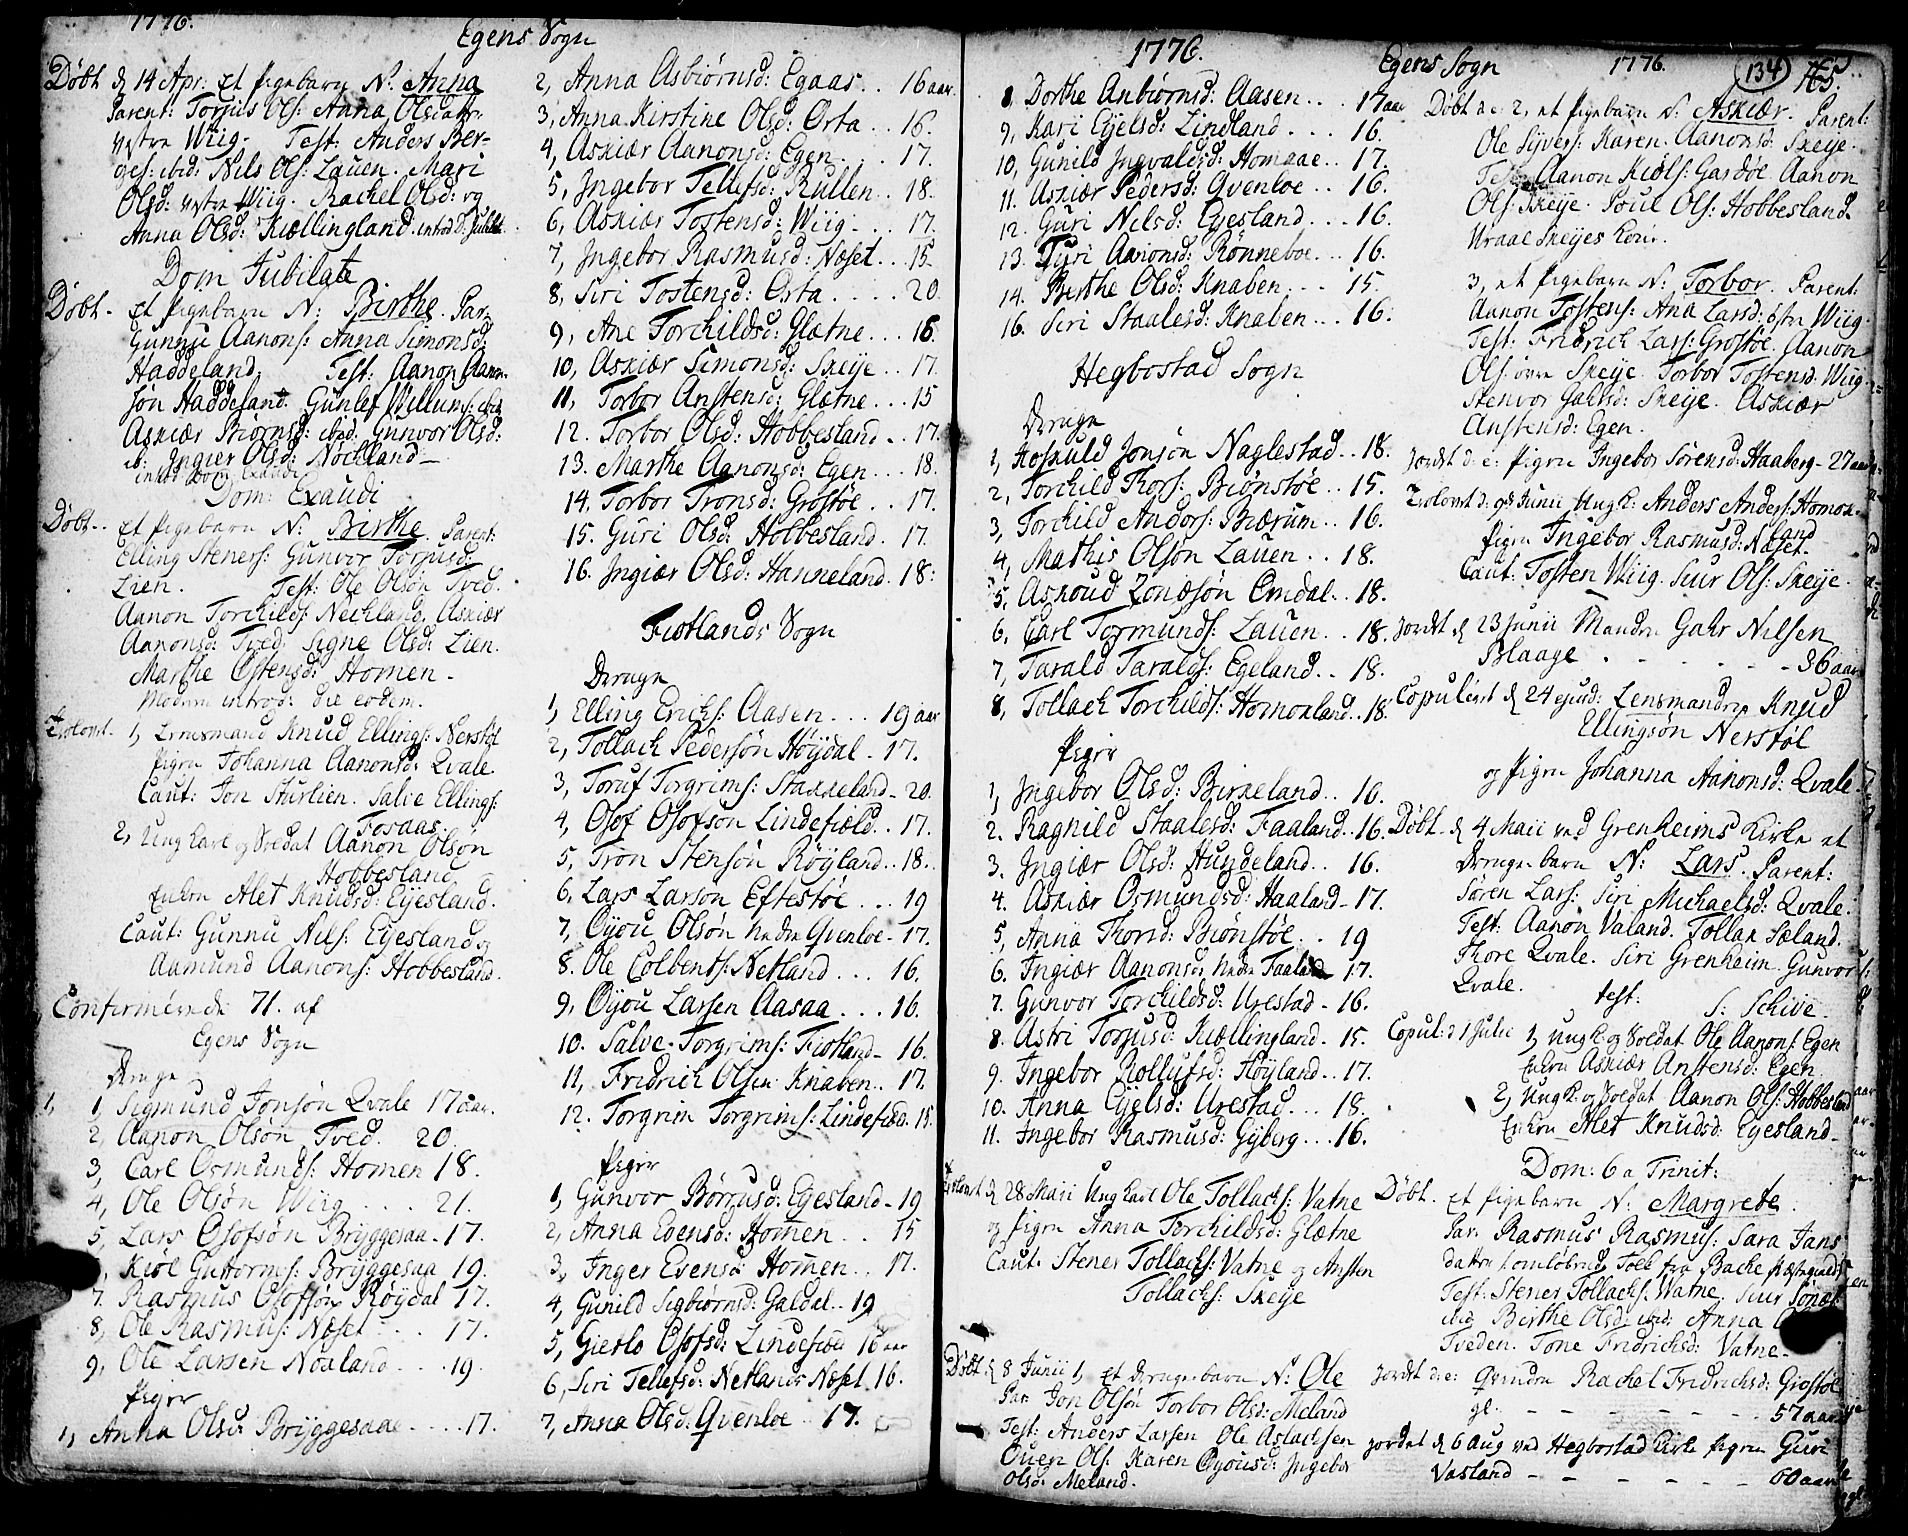 1776.
Egens Sogn
Døbt d 14 Apr: et pigebarn N: Anna
Parent: Torjus Ols: Anna Olsdattr:
vestre Wiig. Test: Anders Ber-
ges: ibid: Nils Ols: Lauen. Mari
Olsd: vestre Wiig. Rachel Olsd: og
Anna Olsd: Kiællingland. introd D: Jubilat
Dom Jubilate
Døbt. et pigebarn N: Birthe. Par-
Gunnu Aanons: Anna Simonsd:
Haddeland. Test: Aanon Aanon-
søn Haddeland. Gunlef Willums: ibid
Askiær Biørnsd: ibid: Gunvor Olsd:
ib: Ingier Olsd: Nockland
introd Dom Exaudi
Dom: Exaudi
Døbt. et pigebarn N: Birthe. Parent:
Elling Steners: Gunvor Torjusd:
Lien. Test: Ole Olsøn Tved.
Aanon Torchilds: Neckland. Askiær
Aanonsd: Tved. Signe Olsd: Lien.
Marthe Ostensd: Homen.
Modern introd: die eodem.
Trolovet. 1, Lensmand Knud Ellings: Nerstøl
pigen Johanna Aanonsd: Qvale.
Caut: Jon Sturlien. Salve Ellings:
Fosaas.
2, Ung karl og Soldat Aanon Olsøn
Hobbesland
Enken Alet Knudsd: Eyesland.
Caut: Gunnu Nils: Eyesland og
Aamund Aanons: Hobbesland.
Confirmerede 71. af
Egens Sogn
Drenge
1, 1, Sigmund Jonsøn Qvale 17 aar.
2, Aanon Olsøn Tved. 20.
3, Carl Osmunds: Homen 18.
4, Ole Olsøn Wiig . . . . 21.
5, Lars Olofsøn Bryggesaa - 17.
Kiøl Guttorms: Bryggesaa 19.
7. Rasmus Olofsøn Røydal 17.
8, Ole Rasmus: Næset . . . 17.
9, Ole Larsen Noaland . . . 19.
Piger
1, Anna Olsd: Bryggesaae . . . . 17.
2, Anna Asbiørnsd: Egaas . . 16 aar.
3, Anna Kirstine Olsd: Orta . . 16.
4, Askiær Aanonsd: Egen . . . 17.
5, Ingebor Tellefsd: Rullen . . 18.
6, Askiær Tostensd: Wiig . . . 17.
7, Ingebor Rasmusd: Næset . . . 15.
8, Siri Tostensd: Orta . . . . 20.
9, Ane Torchildsd: Glætne . . . 16.
10, Askiær Simonsd: Skeije . . 17.
11, Torbor Anstensd: Glætne . . . 15
12. Torbor Olsd: Hobbesland . . 17.
13. Marthe Aanonsd: Egen . . . 18.
14. Torbor Tronsd: Grostøe . . 17.
15. Guri Olsd: Hobbesland . 17.
16. Ingiær Olsd: Hanneland . 18:
Fiotlands Sogn
Drenge
1, Elling Erichs: Aasen . . . 19 aar
2, Tollach Pedersøn Høijdal - 17.
3, Toruf Torgrims: Stakkeland - 20.
4, Olof Olofsøn Lindefield . . 17.
5, Tron Stensøn Røyland . . 18.
6, Lars Larsøn Eftestøl . . . 19
7, Oyou Olsøn nedre Qvenloe - 17.
8. Ole Colbents: Netland . . . 16.
9, Oyou Larsen Aasaa . . . 16.
10. Salve Torgrims: Fiotland - 16.
11, Fridrich Olsen Knaben . . 17.
12. Torgrim Torgrims: Lindefield. 15.
Piger
1, Gunvor Børrusd: Eyesland - 19
2, Anna Evensd: Homen . . 15
3, Inger Evensd: Homen . . 17.
4, Gunild Sigbiørnsd: Galdal . . 19
5, Gierlo Olofsd: Lindefield 16 aar
6, Siri Tellefsd: Netlands Næset . 16.
7, Anna Olsd: Qvenloe . . 17.
1776.
Egens Sogn
1776.
134
165.
8, Dorthe Anbiørnsd: Aasen . . . 17 aar
9, Kari Eyelsd: Lindland . . . . 16.
10, Gunild Ingvaldsd: Homaae . . 17.
11. Askiær Pedersd: Qvenloe . . 16.
12. Guri Nilsd: Eyesland . . . 16.
13. Guri Aanonsd: Rønneboe . . . 16.
14. Berthe Olsd: Knaben . . . 15.
16. Siri Staalesd: Knaben . . . 16.
Hegbostad Sogn
Drenge
1, Hoskuld Jonsøn Naglestad . . 18.
2, Torchild Thors: Biønstøl . . 15.
3, Torchild Andors: Biærum . . 16.
4, Mathis Olsøn Lauen . . 18.
5, Askoud Zondsøn Omdal . . 18.
6, Carl Tormunds: Lauen . . 18.
7, Tarald Taralds: Egeland . . 18.
8, Tollach Torchilds: Homonland . . 18.
Piger
1, Ingebor Olsd: Birkeland . . 16.
2. Ragnild Staalesd: Faaland . . 16.
3. Ingiær Olsd: Hundeland . . 16.
4. Askiær Osmundsd: Haaland - 17.
5, Anna Thorsd: Biønstøl . . 19
6. Ingiær Aanonsd: nedre Faaland 17.
7. Gunvor Torchildsd: Urestad - 16.
8. Astri Torjusd: Kiællingland . 15.
9. Ingebor Rollufsd: Høyland . . 17.
10. Anna Eyelsd: Urestad . . . 18.
11. Ingebor Rasmusd: Gyberg . . . 16.
Trolovet d 28 Maii Ung karl Ole Tollachs: Vatne
og pigen Anna Torchildsd: Glætne
Caut: Stener Tollachs: Vatne og Ansten
Tollachs: Skeye
Døbt. d 8 Junii 1, et drengebarn N: Ole
Par: Jon Olsøn Torbor Olsd: Meland
Test: Anders Larsen Ole Aslachsen
Ouen Ols: Karen Oyousd: Ingebor
Olsd: Meland.
Døbt d. e: 2, et pigebarn N: Askiær. Parent:
Ole Syvers: Karen Aanonsd: Skeye.
Test: Aanon Kiøls: Gasdøe. Aanon
Ols: Skeye. Poul Ols: Hobbesland.
Uraal Skeyes Kone.
3, et pigebarn N: Torbor. Parent:
Aanon Tostens: Ana Larsd: østre Wiig.
Test: Fridrich Lars: Grostøe. Aanon
Ols: øvre Skeye. Torbor Tostensd: Wiig.
Stenvor Gahrsd: Skeye. Askiær
Anstensd: Egen.
Jordet d. e: pigen Ingebor Sørensd: Haaberg - 27 aar
Trolovet d. 9de Junii Ung k: Anders Anders: Homon-
land
pigen Ingebor Rasmusd: Næset.
Caut: Tosten Wiig. Siur Ols: Skeye.
Jordet d 23 Junii Manden Gahr Nilsen
Blaage . - - - - - 36 aar
Copuleret d 24 ejusd: Lensmanden Knud
Ellingsøn Nerstøl
og pigen Johanna Aanonsd: Qvale.
Døbt. d 4 Maii ved Grenheims Kirke et
drengebarn N: Lars. Parent:
Søren Lars: Siri Michaelsd: Qvale.
Test: Aanon Valand. Tollak Sæland.
Thore Qvale. Siri Grenheim. Gunvor
Qvale. test:
S: Schive.
Copul: d 1 Julii 1, Ung k: og Soldat Ole Aanons: Egen
Enken Askiær Anstensd: Egen.
2, Ung k: og Soldat Aanon Ols: Hobbesland
Enken Alet Knudsd: Eyesland.
Dom: 6 a Trinit:
Døbt. et pigebarn N: Margrete.
Par: Rasmus Rasmus: Sara Jans
datter omløbende Folk fra Backe Præstegield
Test: Stener Tollachs: Vatne. Siur
ibid Birthe Olsd: ibid: Anna
Tveden. Tone Fridrichsd: Vatne.
Jordet d: e: Qvinden Rachel Fridrichsd: Grostøl
gl. - - - - - - 57 aar
Jordet d 6 Aug ved Hegbostad Kirke pigen Guri
Vasland - - - - - 60 aar